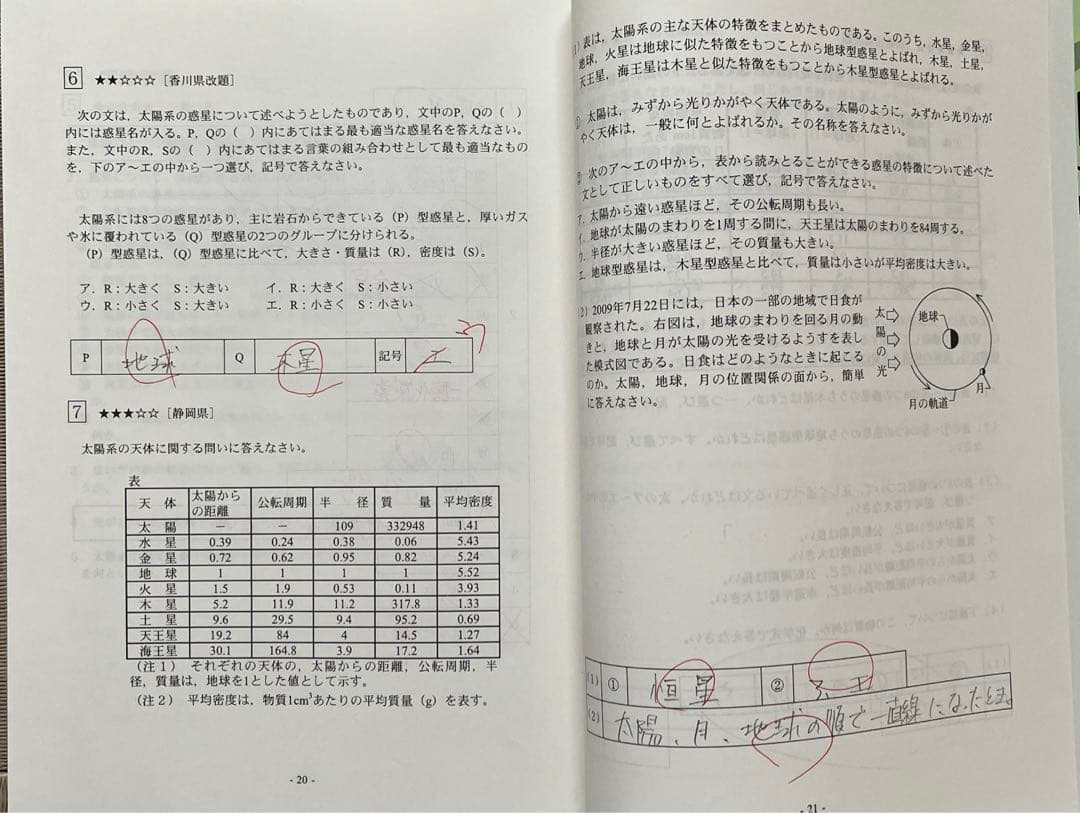 6 ★★☆☆☆ [香川県改題]
次の文は，太陽系の惑星について述べようとしたものであり，文中のP，Qの（ ）
内には惑星名が入る。P，Qの（ ）内にあてはまる最も適当な惑星名を答えなさい。
また，文中のR，Sの（ ）内にあてはまる言葉の組み合わせとして最も適当なもの
を，下のア～エの中から一つ選び，記号で答えなさい。
太陽系には8つの惑星があり，主に岩石からできている（P）型惑星と，厚いガス
や氷に覆われている（Q）型惑星の2つのグループに分けられる。
（P）型惑星は，（Q）型惑星に比べて，大きさ・質量は（R），密度は（S）。
ア．R：大きく S：大きい イ．R：大きく S：小さい
ウ．R：小さく S：大きい エ．R：小さく S：小さい
P 地球 Q 木星 記号 エ ウ
7 ★★★☆☆ [静岡県]
太陽系の天体に関する問いに答えなさい。
表
天 体 太陽からの距離 公転周期 半 径 質 量 平均密度
太 陽 － － 109 332948 1.41
水 星 0.39 0.24 0.38 0.06 5.43
金 星 0.72 0.62 0.95 0.82 5.24
地 球 1 1 1 1 5.52
火 星 1.5 1.9 0.53 0.11 3.93
木 星 5.2 11.9 11.2 317.8 1.33
土 星 9.6 29.5 9.4 95.2 0.69
天王星 19.2 84 4 14.5 1.27
海王星 30.1 164.8 3.9 17.2 1.64
（注１） それぞれの天体の，太陽からの距離，公転周期，半
径，質量は，地球を1とした値として示す。
（注２） 平均密度は，物質1cm³あたりの平均質量（g）を表す。
- 20 -
(1) 表は，太陽系の主な天体の特徴をまとめたものである。このうち，水星，金星，
地球，火星は地球に似た特徴をもつことから地球型惑星とよばれ，木星，土星，
天王星，海王星は木星と似た特徴をもつことから木星型惑星とよばれる。
① 太陽は，みずから光りかがやく天体である。太陽のように，みずから光りかが
やく天体は，一般に何とよばれるか。その名称を答えなさい。
② 次のア～エの中から，表から読みとることができる惑星の特徴について述べた
文として正しいものをすべて選び，記号で答えなさい。
ア．太陽から遠い惑星ほど，その公転周期も長い。
イ．地球が太陽のまわりを1周する間に，天王星は太陽のまわりを84周する。
ウ．半径が大きい惑星ほど，その質量も大きい。
エ．地球型惑星は，木星型惑星と比べて，質量は小さいが平均密度は大きい。
(2) 2009年7月22日には，日本の一部の地域で日食が
観察された。右図は，地球のまわりを回る月の動
きと，地球と月が太陽の光を受けるようすを表し
た模式図である。日食はどのようなときに起こる
のか。太陽，地球，月の位置関係の面から，簡単
に答えなさい。
太陽の光
地球
月
月の軌道
(1) ① 恒星 ②
(2) 太陽、月、地球の順で一直線になったとき。
- 21 -